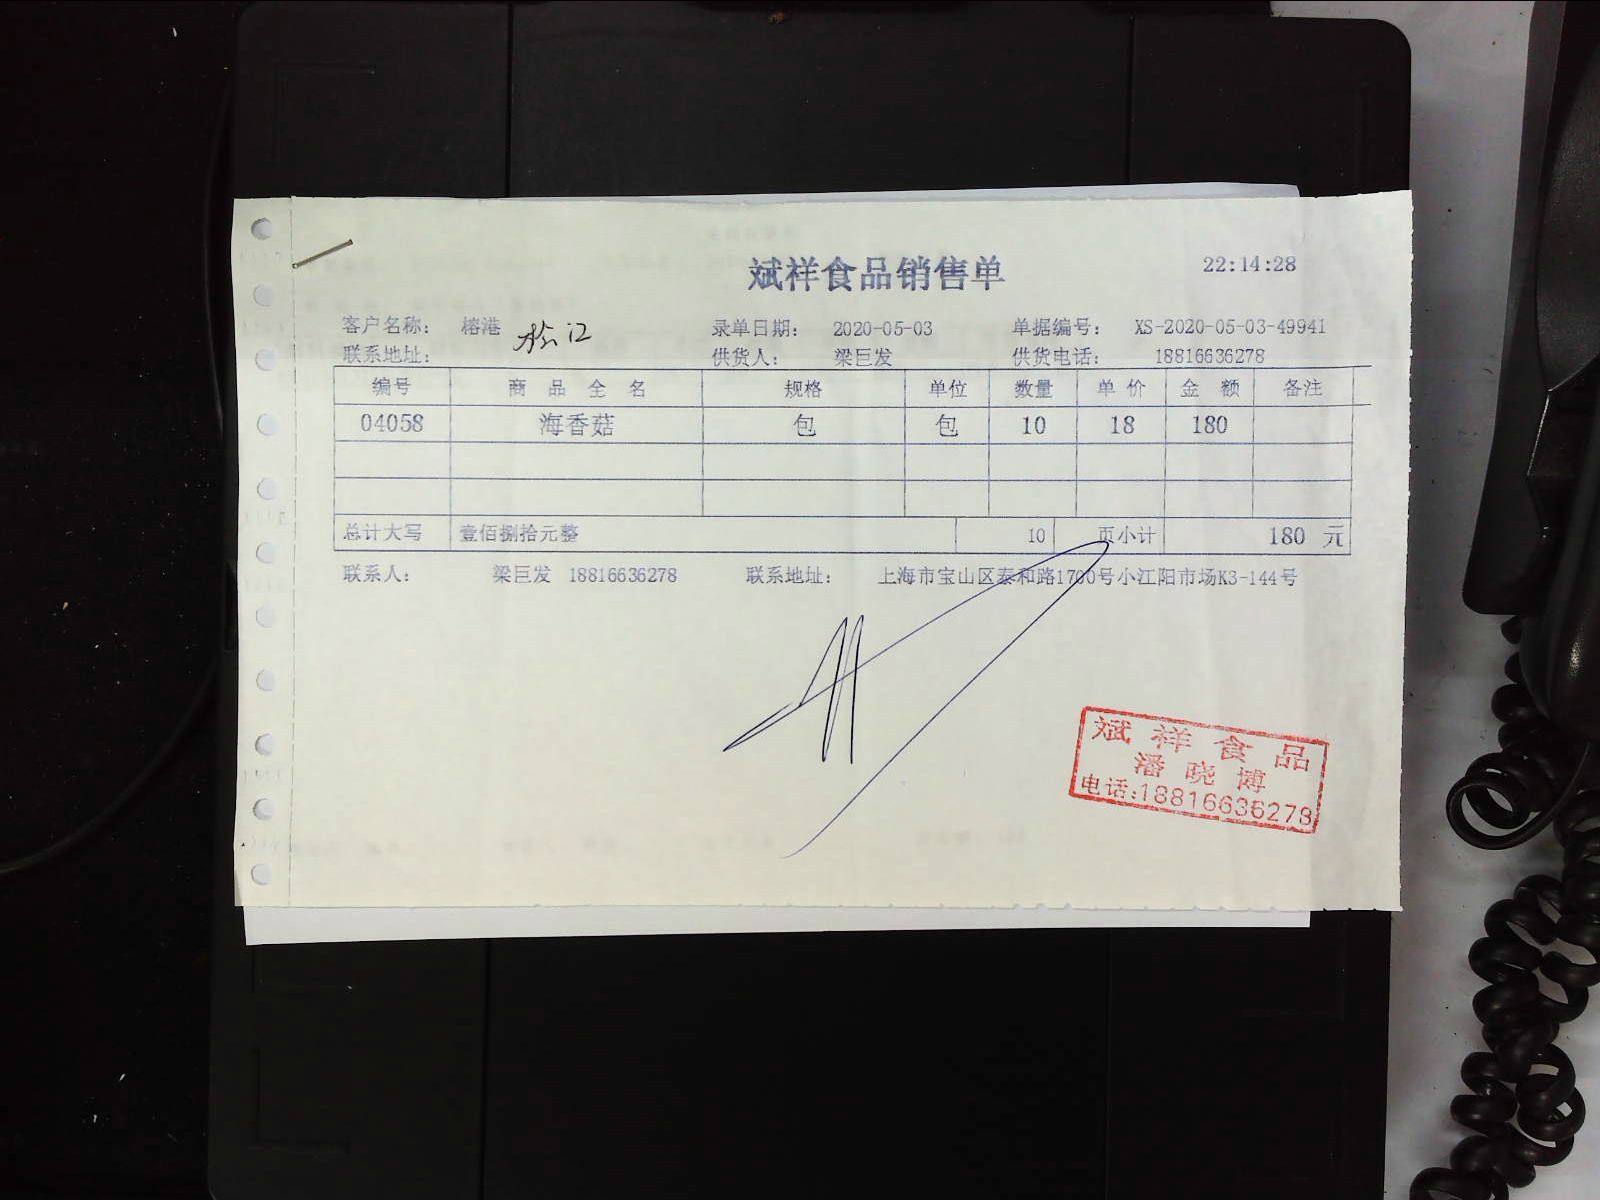 斌祥食品销售单 22:14:28
客户名称： 榕港 松江 录单日期： 2020-05-03 单据编号： XS-2020-05-03-49941
联系地址： 供货人： 梁巨发 供货电话： 18816636278
编号 商品全名 规格 单位 数量 单价 金额 备注
04058 海香菇 包 包 10 18 180
总计大写 壹佰捌拾元整 10 页小计 180 元
联系人： 梁巨发 18816636278 联系地址： 上海市宝山区泰和路1700号小江阳市场K3-144号
斌祥食品
潘晓博
电话:18816636278